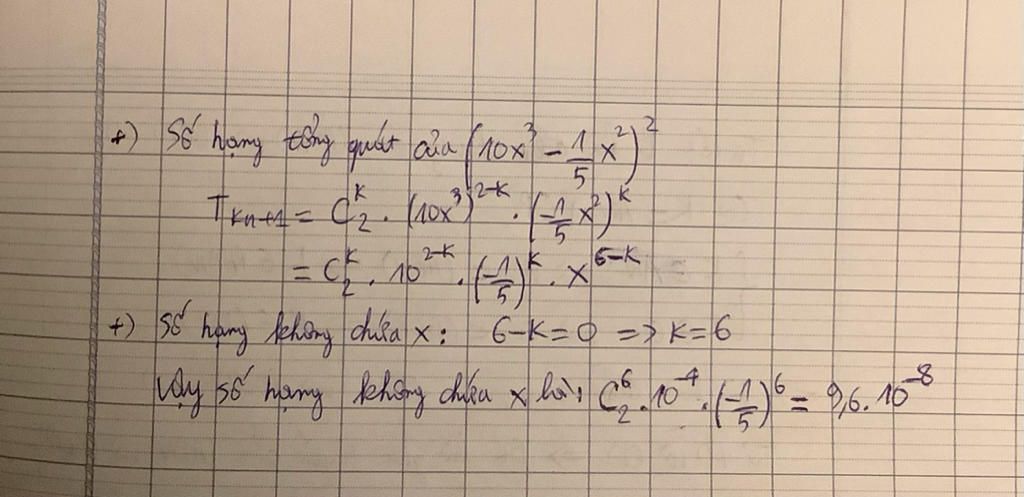 +) Số hạng tổng quát của (10x³ - 1/5 x²)²
T_{k+1} = C₂ᵏ . (10x³)^{2-k} . (-1/5 x²)^k
= C₂ᵏ . 10^{2-k} . (-1/5)^k . x^{6-k}
+) Số hạng không chứa x: 6-k=0 => k=6
Vậy số hạng không chứa x là: C₂⁶ . 10⁻⁴ . (-1/5)⁶ = 9,6.10⁻⁸